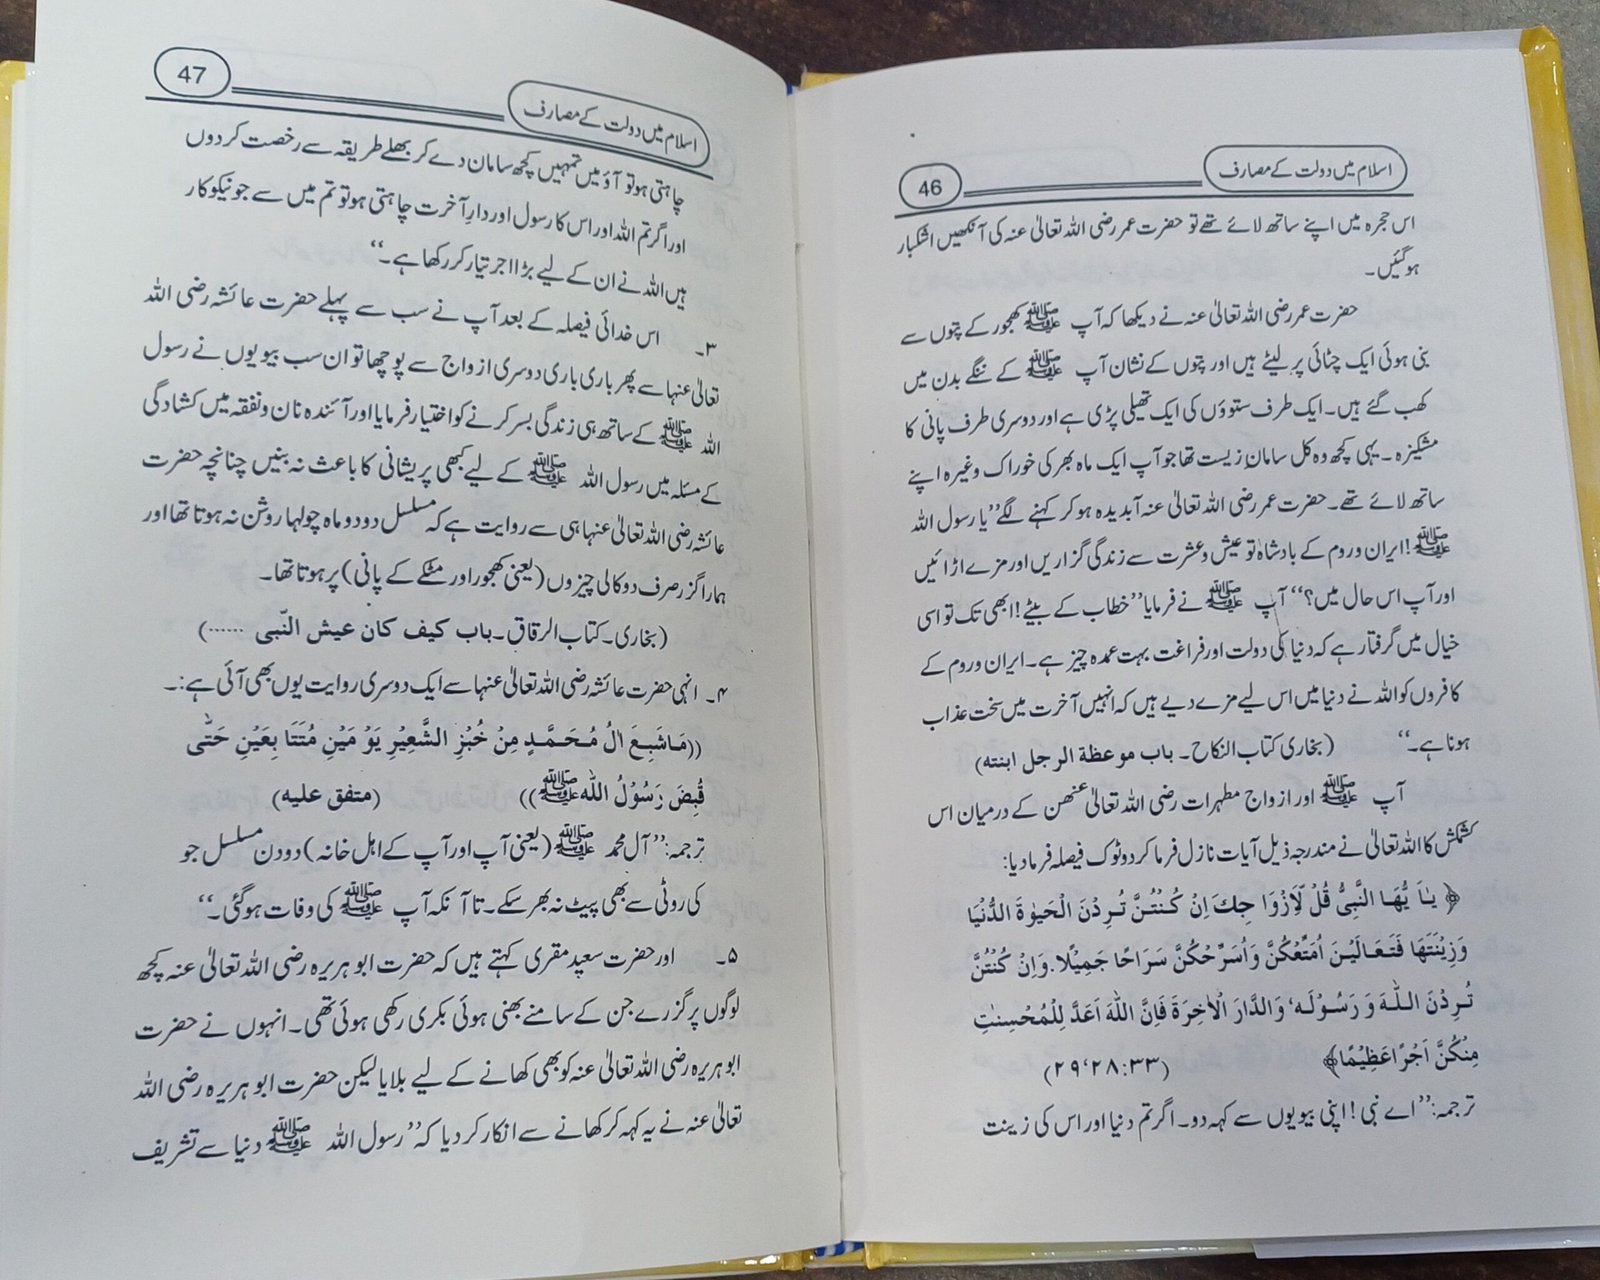 اسلام میں دولت کے مصارف
46
اس حجرہ میں اپنے ساتھ لائے تھے تو حضرت عمر رضی اللہ تعالیٰ عنہ کی آنکھیں اشکبار
ہوگئیں۔
حضرت عمر رضی اللہ تعالیٰ عنہ نے دیکھا کہ آپ ﷺ کھجور کے پتوں سے
بنی ہوئی ایک چٹائی پر لیٹے ہیں اور پتوں کے نشان آپ ﷺ کے ننگے بدن میں
کھب گئے ہیں۔ ایک طرف ستوؤں کی ایک تھیلی پڑی ہے اور دوسری طرف پانی کا
مشکیزہ۔ یہی کچھ وہ کل سامانِ زیست تھا جو آپ ایک ماہ بھر کی خوراک وغیرہ اپنے
ساتھ لائے تھے۔ حضرت عمر رضی اللہ تعالیٰ عنہ آبدیدہ ہو کر کہنے لگے ”یا رسول اللہ
ﷺ! ایران و روم کے بادشاہ تو عیش و عشرت سے زندگی گزاریں اور مزے اڑائیں
اور آپ اس حال میں؟“ آپ ﷺ نے فرمایا ”خطاب کے بیٹے! ابھی تک تو اسی
خیال میں گرفتار ہے کہ دنیا کی دولت اور فراغت بہت عمدہ چیز ہے۔ ایران و روم کے
کافروں کو اللہ نے دنیا میں اس لیے مزے دیے ہیں کہ انہیں آخرت میں سخت عذاب
ہونا ہے۔“ (بخاری کتاب النکاح۔ باب موعظة الرجل ابنته)
آپ ﷺ اور ازواج مطہرات رضی اللہ تعالیٰ عنھن کے درمیان اس
کشمکش کا اللہ تعالیٰ نے مندرجہ ذیل آیات نازل فرما کر دوٹوک فیصلہ فرما دیا:
﴿ یٰاَ یُّهَا النَّبِیُّ قُلْ لِّاَزْوَا جِكَ اِنْ كُنْتُنَّ تُرِدْنَ الْحَیٰوةَ الدُّنْیَا
وَزِیْنَتَهَا فَتَعَالَیْنَ اُمَتِّعْكُنَّ وَاُسَرِّحْكُنَّ سَرَاحًا جَمِیْلًا. وَاِنْ كُنْتُنَّ
تُرِدْنَ اللّٰهَ وَ رَسُوْلَه، وَالدَّارَ الْاٰخِرَةَ فَاِنَّ اللّٰهَ اَعَدَّ لِلْمُحْسِنٰتِ
مِنْكُنَّ اَجْرًا عَظِیْمًا﴾ (۳۳:۲۸،۲۹)
ترجمہ: ”اے نبی! اپنی بیویوں سے کہہ دو۔ اگر تم دنیا اور اس کی زینت
اسلام میں دولت کے مصارف
47
چاہتی ہو تو آؤ میں تمہیں کچھ سامان دے کر بھلے طریقہ سے رخصت کردوں
اور اگر تم اللہ اور اس کا رسول اور دارِ آخرت چاہتی ہو تو تم میں سے جو نیکو کار
ہیں اللہ نے ان کے لیے بڑا اجر تیار کر رکھا ہے۔“
۳۔ اس خدائی فیصلہ کے بعد آپ نے سب سے پہلے حضرت عائشہ رضی اللہ
تعالیٰ عنہا سے پھر باری باری دوسری ازواج سے پوچھا تو ان سب بیویوں نے رسول
اللہ ﷺ کے ساتھ ہی زندگی بسر کرنے کو اختیار فرمایا اور آئندہ نان و نفقہ میں کشادگی
کے مسئلہ میں رسول اللہ ﷺ کے لیے کبھی پریشانی کا باعث نہ بنیں چنانچہ حضرت
عائشہ رضی اللہ تعالیٰ عنہا ہی سے روایت ہے کہ مسلسل دو دو ماہ چولہا روشن نہ ہوتا تھا اور
ہمارا گزر صرف دو کالی چیزوں (یعنی کھجور اور مٹکے کے پانی) پر ہوتا تھا۔
(بخاری۔ کتاب الرقاق۔ باب کیف کان عیش النّبی ......)
۴۔ انہی حضرت عائشہ رضی اللہ تعالیٰ عنہا سے ایک دوسری روایت یوں بھی آئی ہے:۔
((مَاشَبِعَ اٰلُ مُحَمَّدٍ مِنْ خُبْزِ الشَّعِیْرِ یَوْ مَیْنِ مُتَتَا بِعَیْنِ حَتّٰی
قُبِضَ رَسُوْلُ اللّٰه ﷺ)) (متفق علیه)
ترجمہ: ”آل محمد ﷺ (یعنی آپ اور آپ کے اہل خانہ) دو دن مسلسل جو
کی روٹی سے بھی پیٹ نہ بھر سکے۔ تا آنکہ آپ ﷺ کی وفات ہوگئی۔“
۵۔ اور حضرت سعید مقری کہتے ہیں کہ حضرت ابو ہریرہ رضی اللہ تعالیٰ عنہ کچھ
لوگوں پر گزرے جن کے سامنے بھنی ہوئی بکری رکھی ہوئی تھی۔ انہوں نے حضرت
ابو ہریرہ رضی اللہ تعالیٰ عنہ کو بھی کھانے کے لیے بلایا لیکن حضرت ابو ہریرہ رضی اللہ
تعالیٰ عنہ نے یہ کہہ کر کھانے سے انکار کر دیا کہ ”رسول اللہ ﷺ دنیا سے تشریف